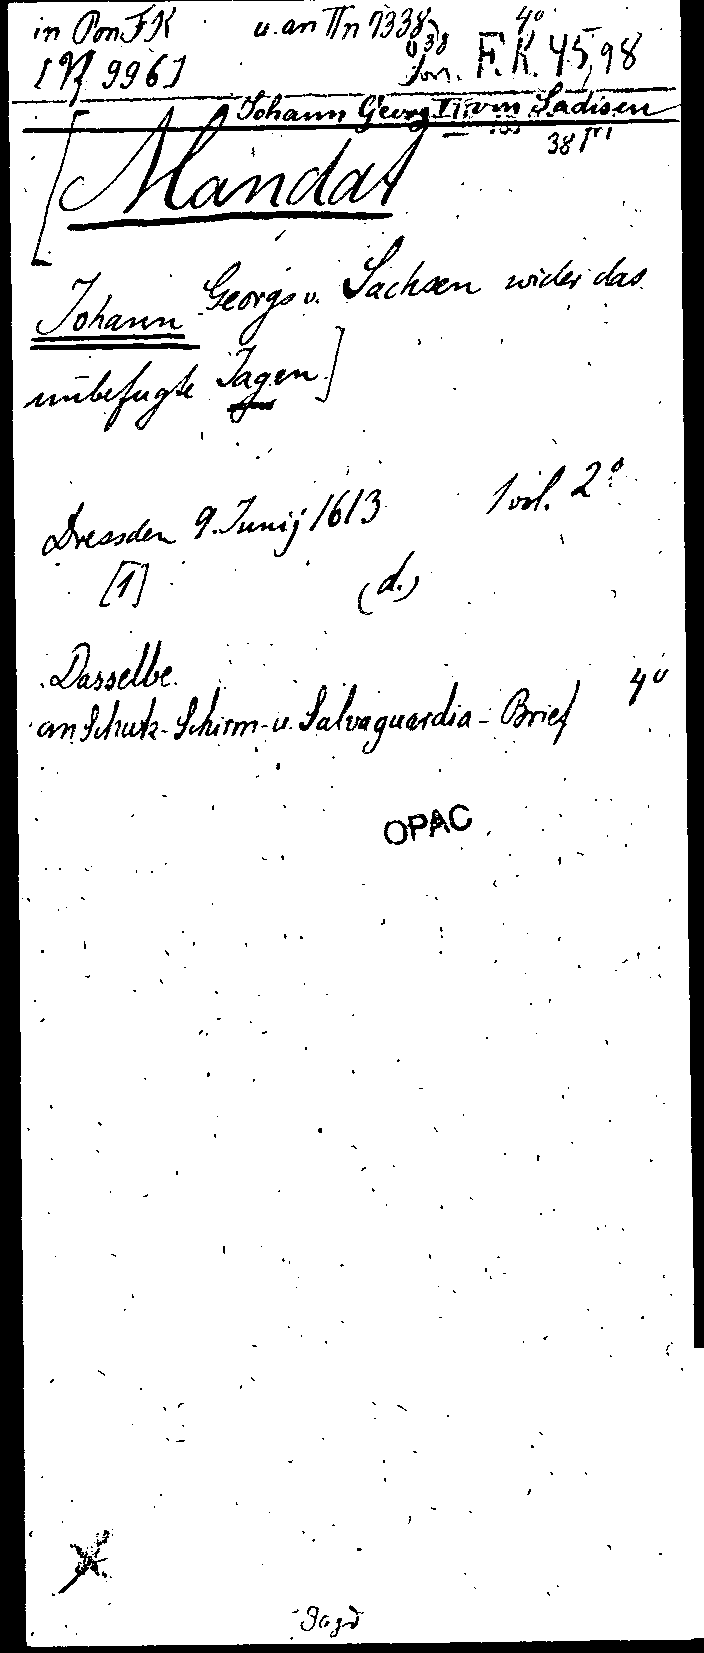 in Pon FK u. an IIn 7338 4°
[Vf 996] Pon. F. K. 45, 98
Johann Georg I. von Sachsen
38
[Mandat
Johann Georgs v. Sachsen wider das
unbefugte Jagen.]
Dressden 9. Junij 1613 1 vol. 2°
[1] (d.)
Dasselbe. 4°
an Schutz-Schirm- u. Salvaguardia-Brief
OPAC
Jagd